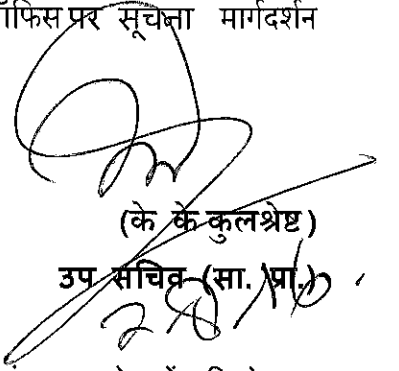 ऑफिस पर सूचना मार्गदर्शन
(के के कुलश्रेष्ट)
उप सचिव (सा. प्रा.)